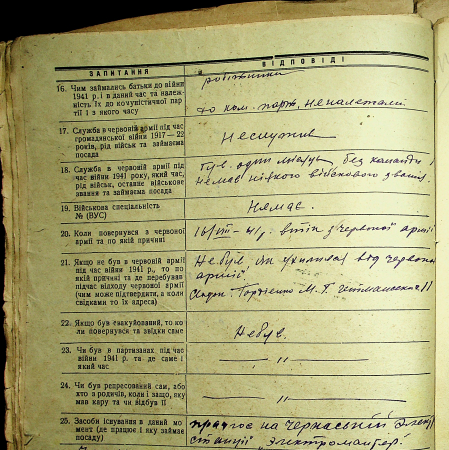 ЗАПИТАННЯ
ВІДПОВІДІ
робітники
16. Чим займались батьки до війни
1941 р. і в даний час та належ-
ність їх до комуністичної пар-
тії і з якого часу
до ком. парт. неналежали
17. Служба в червоній армії під час
громадянської війни 1917—22
років, рід військ та займаєма
посада
Неслужив
18. Служба в червоній армії під
час війни 1941 року, який час,
рід військ, останнє військове
звання та займаєма посада
Був один місяць без команди
Немав ніякого військового звання.
19. Військова спеціальність
№ (ВУС)
Немає.
20. Коли повернувся з червоної
армії та по якій причині
16/VIII-41р. втік з червоної армії
21. Якщо не був в червоній армії
під час війни 1941 р., то по
якій причині та де перебував
підчас відходу червоної армії
(чим може підтвердити, а коли
свідками то їх адреса)
Небув. Як ухилився від червоної
армії.
М. Т.
22. Якщо був евакуйований, то ко-
ли повернувся та звідки саме
Небув.
23. Чи був в партизанах під час
війни 1941 р. та де саме і
який час
— „ —
24. Чи був репресований сам, або
хто з родичів, коли і защо, яку
мав кару та чи відбув її
— „ —
25. Засоби існування в даний мо-
мент (де працює і яку займає
посаду)
працює на Черкаській элек
станції электромонтер.